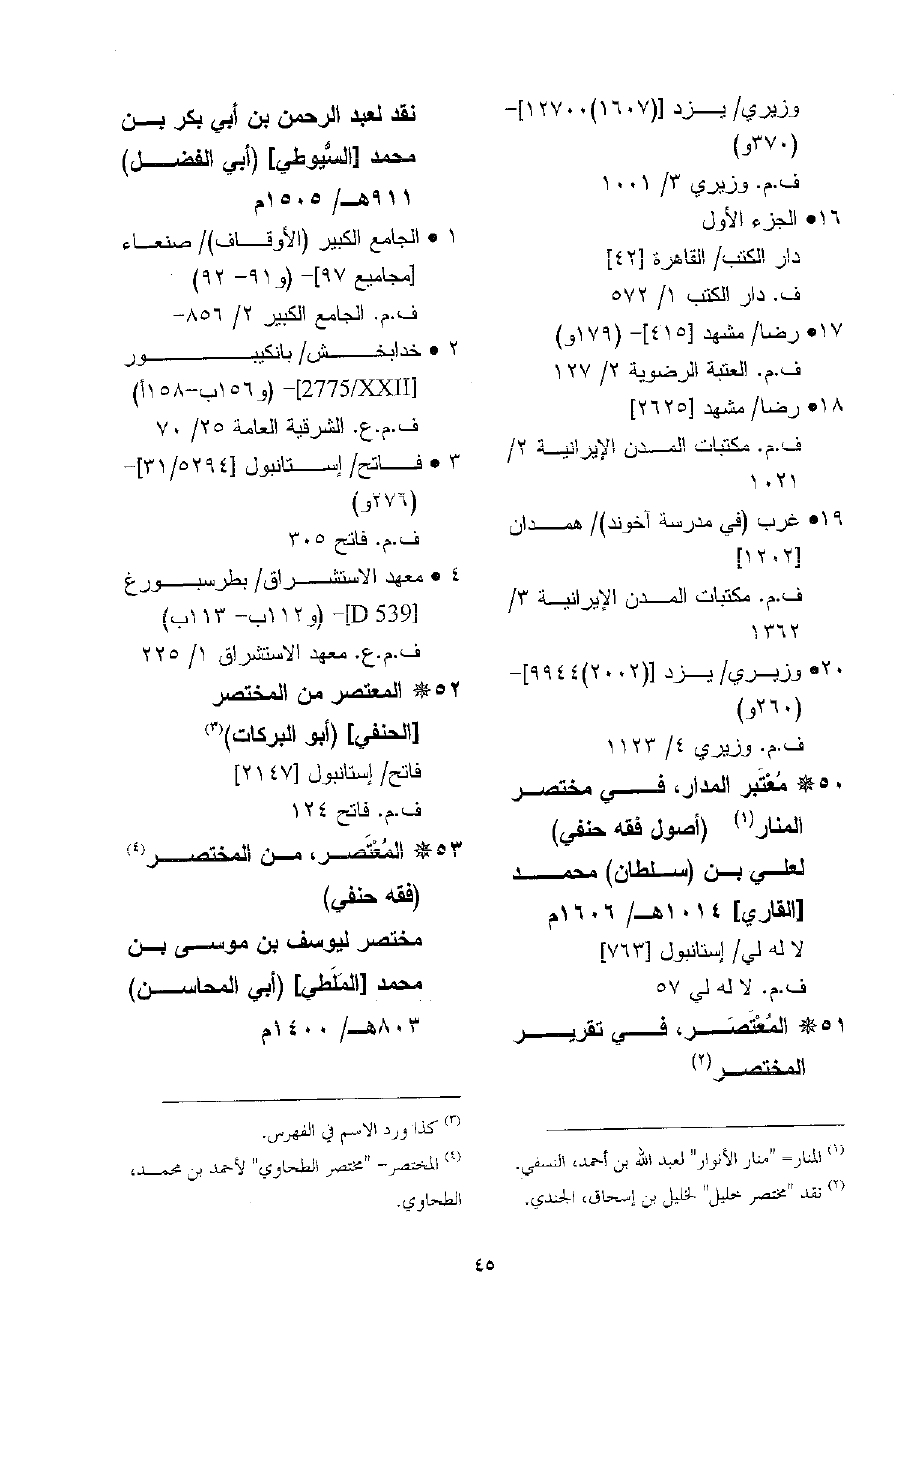 وزيري/ يـزد [(١٦٠٧)١٢٧٠٠]-
(٣٧٠و)
ف.م. وزيري ٣/ ١٠٠١
١٦• الجزء الأول
دار الكتب/ القاهرة [٤٢]
ف. دار الكتب ١/ ٥٧٢
١٧• رضا/ مشهد [٤١٥]- (١٧٩و)
ف.م. العتبة الرضوية ٢/ ١٢٧
١٨• رضا/ مشهد [٢٦٢٥]
ف.م. مكتبات المـدن الإيرانيـة ٢/
١٠٢١
١٩• غرب (في مدرسة آخوند)/ همـدان
[١٢٠٢]
ف.م. مكتبات المـدن الإيرانيـة ٣/
١٣٦٢
٢٠• وزيـري/ يـزد [(٢٠٠٢)٩٩٤٤]-
(٢٦٠و)
ف.م. وزيري ٤/ ١١٢٣
٥٠❊ مُعْتَبر المدار، فـي مختصـر
المنار(١) (أصول فقه حنفي)
لعلـي بـن (سـلطان) محمـد
[القاري] ١٠١٤هـ/ ١٦٠٦م
لا له لي/ إستانبول [٧٦٣]
ف.م. لا له لي ٥٧
٥١❊ المُعْتَصَـر، فـي تقريـر
المختصـر(٢)
(١) المنار= "منار الأنوار" لعبد الله بن أحمد، النسفي.
(٢) نقد "مختصر خليل" لخليل بن إسحاق، الجندي.
نقد لعبد الرحمن بن أبي بكر بـن
محمد [السُّيوطي] (أبي الفضـل)
٩١١هـ/ ١٥٠٥م
١ • الجامع الكبير (الأوقـاف)/ صنعـاء
[مجاميع ٩٧]- (و٩١- ٩٢)
ف.م. الجامع الكبير ٢/ ٨٥٦-
٢ • خدابخـش/ بانكيبـور
[2775/XXII]- (و١٥٦ب-١٥٨أ)
ف.م.ع. الشرقية العامة ٢٥/ ٧٠
٣ • فـاتح/ إسـتانبول [٣١/٥٢٩٤]-
(٢٧٦و)
ف.م. فاتح ٣٠٥
٤ • معهد الاستشـراق/ بطرسـبورغ
[D 539]- (و١١٢ب- ١١٣ب)
ف.م.ع. معهد الاستشراق ١/ ٢٢٥
٥٢❊ المعتصر من المختصر
[الحنفي] (أبو البركات)(٣)
فاتح/ إستانبول [٢١٤٧]
ف.م. فاتح ١٢٤
٥٣❊ المُعْتَصـر، مـن المختصـر(٤)
(فقه حنفي)
مختصر ليوسف بن موسـى بـن
محمد [المَلَطي] (أبي المحاسـن)
٨٠٣هـ/ ١٤٠٠م
(٣) كذا ورد الاسم في الفهرس.
(٤) المختصر- "مختصر الطحاوي" لأحمد بن محمـد،
الطحاوي.
٤٥